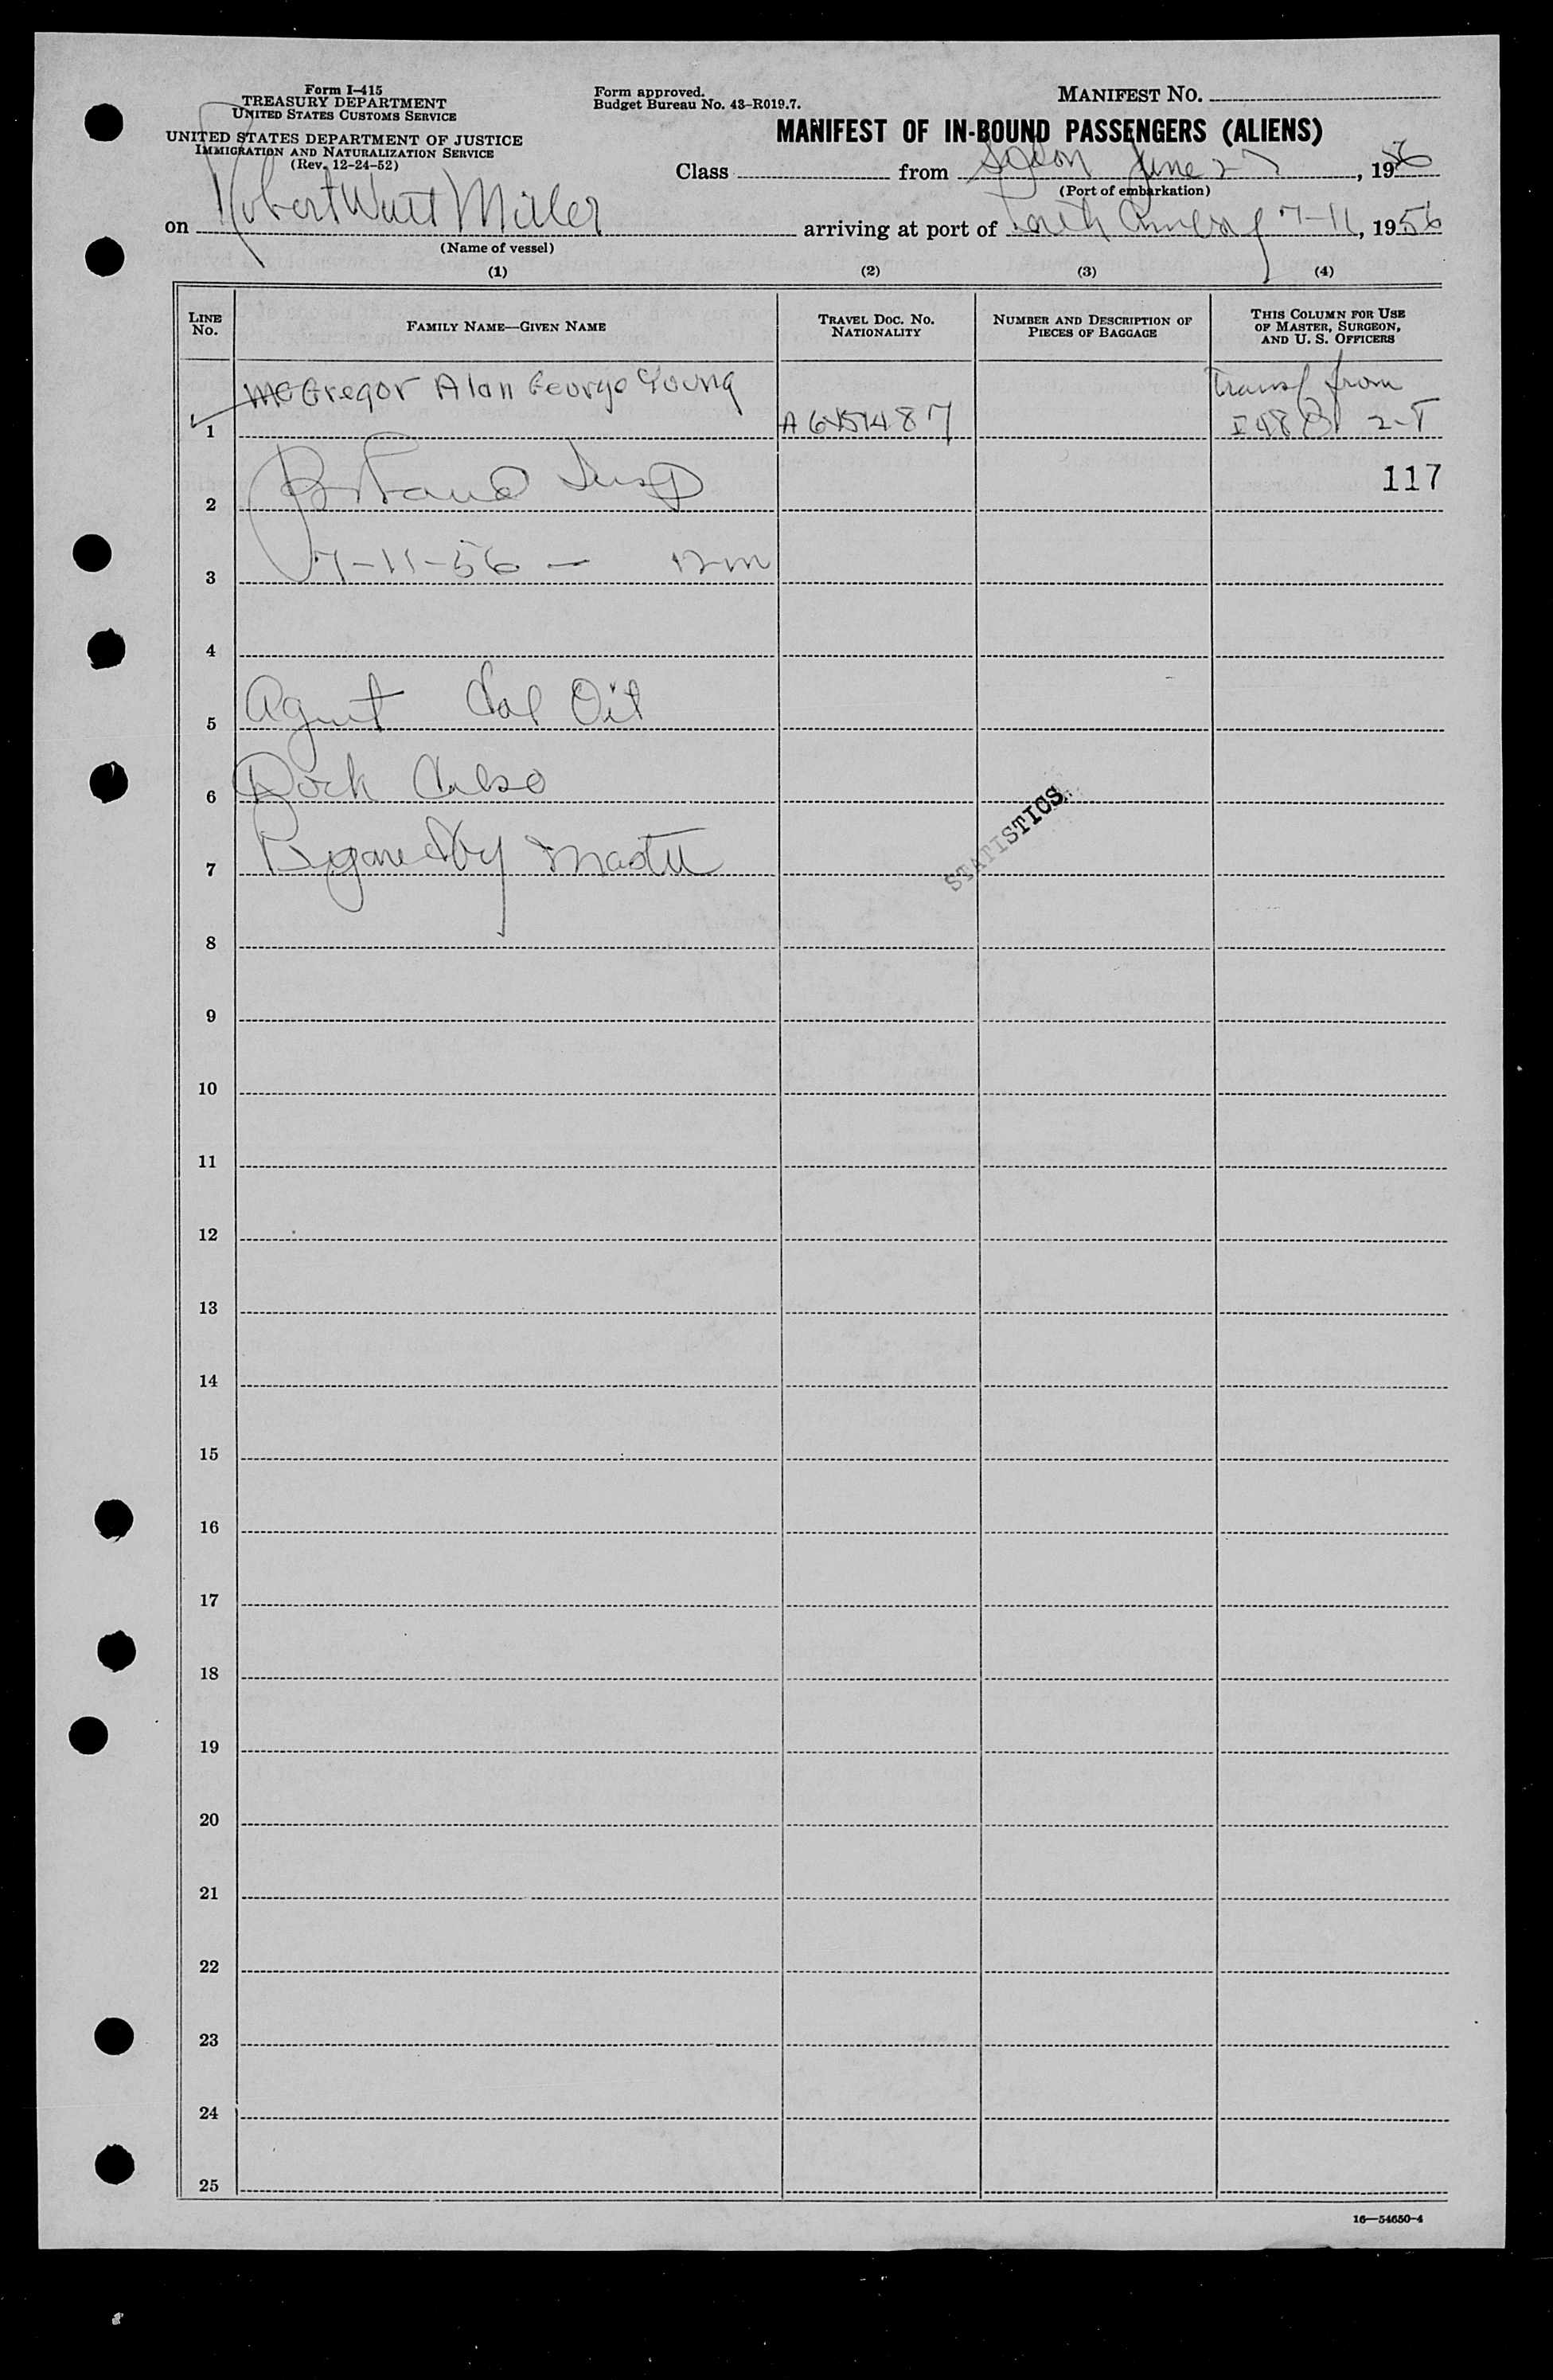 Form I-415
TREASURY DEPARTMENT
UNITED STATES CUSTOMS SERVICE
UNITED STATES DEPARTMENT OF JUSTICE
IMMIGRATION AND NATURALIZATION SERVICE
(Rev. 12-24-52)
Form approved.
Budget Bureau No. 43-R019.7.
MANIFEST No.
MANIFEST OF IN-BOUND PASSENGERS (ALIENS)
Class from June 27, 1956
(Port of embarkation)
on Robert Watt Miller arriving at port of Perth Amboy 7-11, 1956
(Name of vessel)
(1) (2) (3) (4)
LINE No. FAMILY NAME—GIVEN NAME TRAVEL DOC. NO. NATIONALITY NUMBER AND DESCRIPTION OF PIECES OF BAGGAGE THIS COLUMN FOR USE OF MASTER, SURGEON, AND U. S. OFFICERS
1 McGregor Alan George Young Transf from
A6451487 I 480 2-T
2 Insp 117
3 7-11-56 — 12 m
4
5 Agent Cal Oil
6 Dock Calso
7 Signed by Master
STATISTICS
8
9
10
11
12
13
14
15
16
17
18
19
20
21
22
23
24
25
16—54650-4